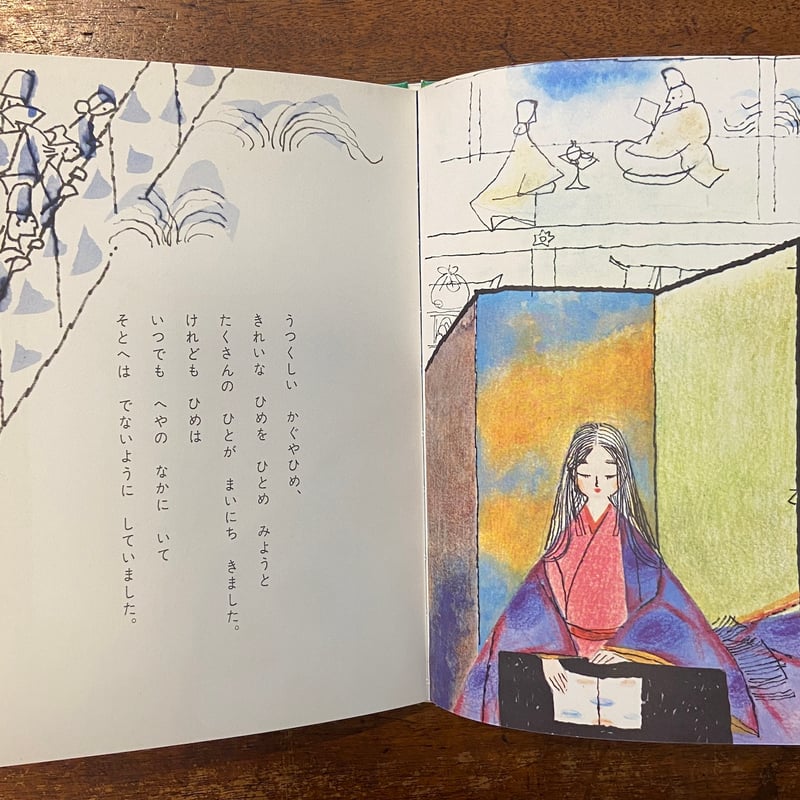 うつくしい かぐやひめ、
きれいな ひめを ひとめ みようと
たくさんの ひとが まいにち きました。
けれども ひめは
いつでも へやの なかに いて
そとへは でないように していました。